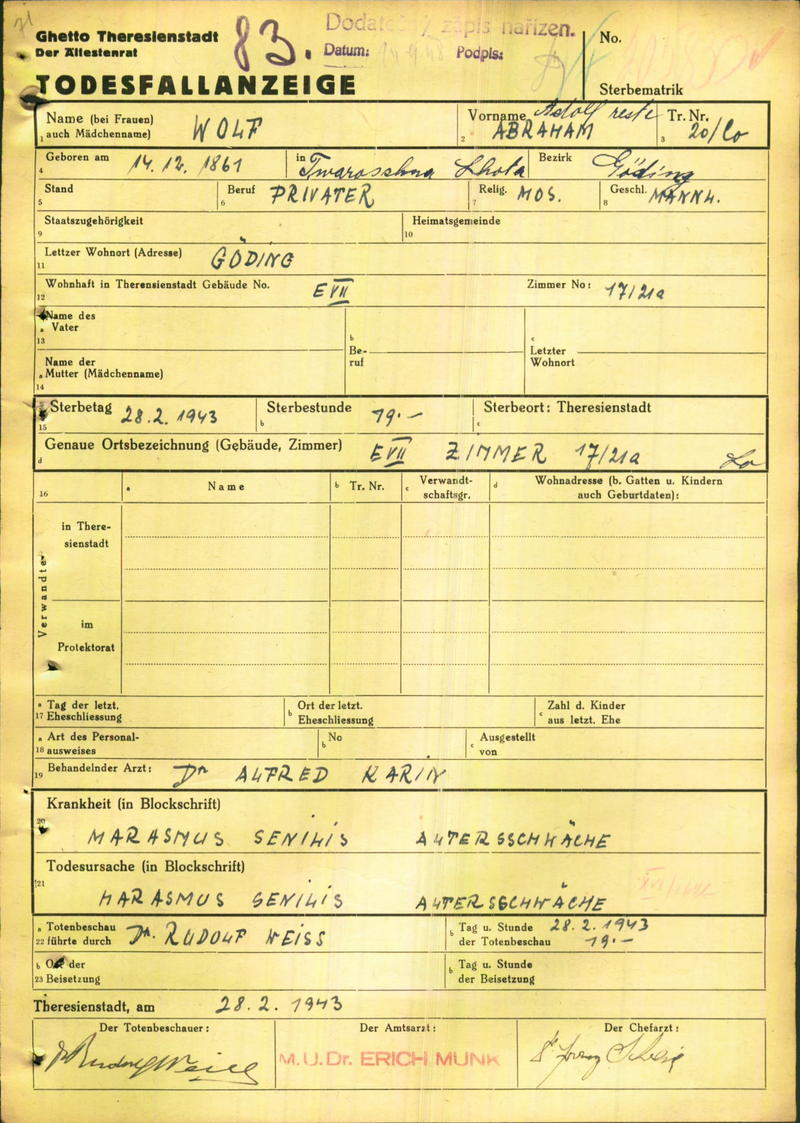 Ghetto Theresienstadt
Der Ältestenrat
83.
Dodatečný zápis nařízen.
Datum:
Podpis:
No.
Sterbematrik
TODESFALLANZEIGE
Name (bei Frauen)
1 auch Mädchenname)
WOLF
Vorname Adolf
2 ABRAHAM
Tr. Nr.
3 20/Co
Geboren am 14.12.1861
4
in Twaroschna Lhota
Bezirk Göding
Stand
5
Beruf PRIVATER
6
Relig. MOS.
7
Geschl. MÄNNL.
8
Staatszugehörigkeit
9
Heimatsgemeinde
10
Lettzer Wohnort (Adresse) GÖDING
11
Wohnhaft in Therensienstadt Gebäude No. EVII
12
Zimmer No: 17/21a
Name des
a Vater
13
Name der
a Mutter (Mädchenname)
14
b
Be-
ruf
c
Letzter
Wohnort
Sterbetag 28.2. 1943
15
Sterbestunde 19.—
b
Sterbeort: Theresienstadt
c
Genaue Ortsbezeichnung (Gebäude, Zimmer) EVII ZIMMER 17/21a
d
16
a Name
b Tr. Nr.
c Verwandt-
schaftsgr.
d Wohnadresse (b. Gatten u. Kindern
auch Geburtdaten):
Verwandte
in There-
sienstadt
im
Protektorat
a Tag der letzt.
17 Eheschliessung
b Ort der letzt.
Eheschliessung
c Zahl d. Kinder
aus letzt. Ehe
a Art des Personal-
18 ausweises
b No
c Ausgestellt
von
19 Behandelnder Arzt: Dr ALFRED KARIN
Krankheit (in Blockschrift)
20
MARASMUS SENILIS ALTERSSCHWÄCHE
Todesursache (in Blockschrift)
21
MARASMUS SENILIS ALTERSSCHWÄCHE
a Totenbeschau
22 führte durch Dr. RUDOLF WEISS
b Tag u. Stunde 28.2.1943
der Totenbeschau 19.—
b Ort der
23 Beisetzung
b Tag u. Stunde
der Beisetzung
Theresienstadt, am 28.2. 1943
Der Totenbeschauer:
Der Amtsarzt:
Der Chefarzt:
Dr Rudolf Weiss
M.U.Dr. ERICH MUNK